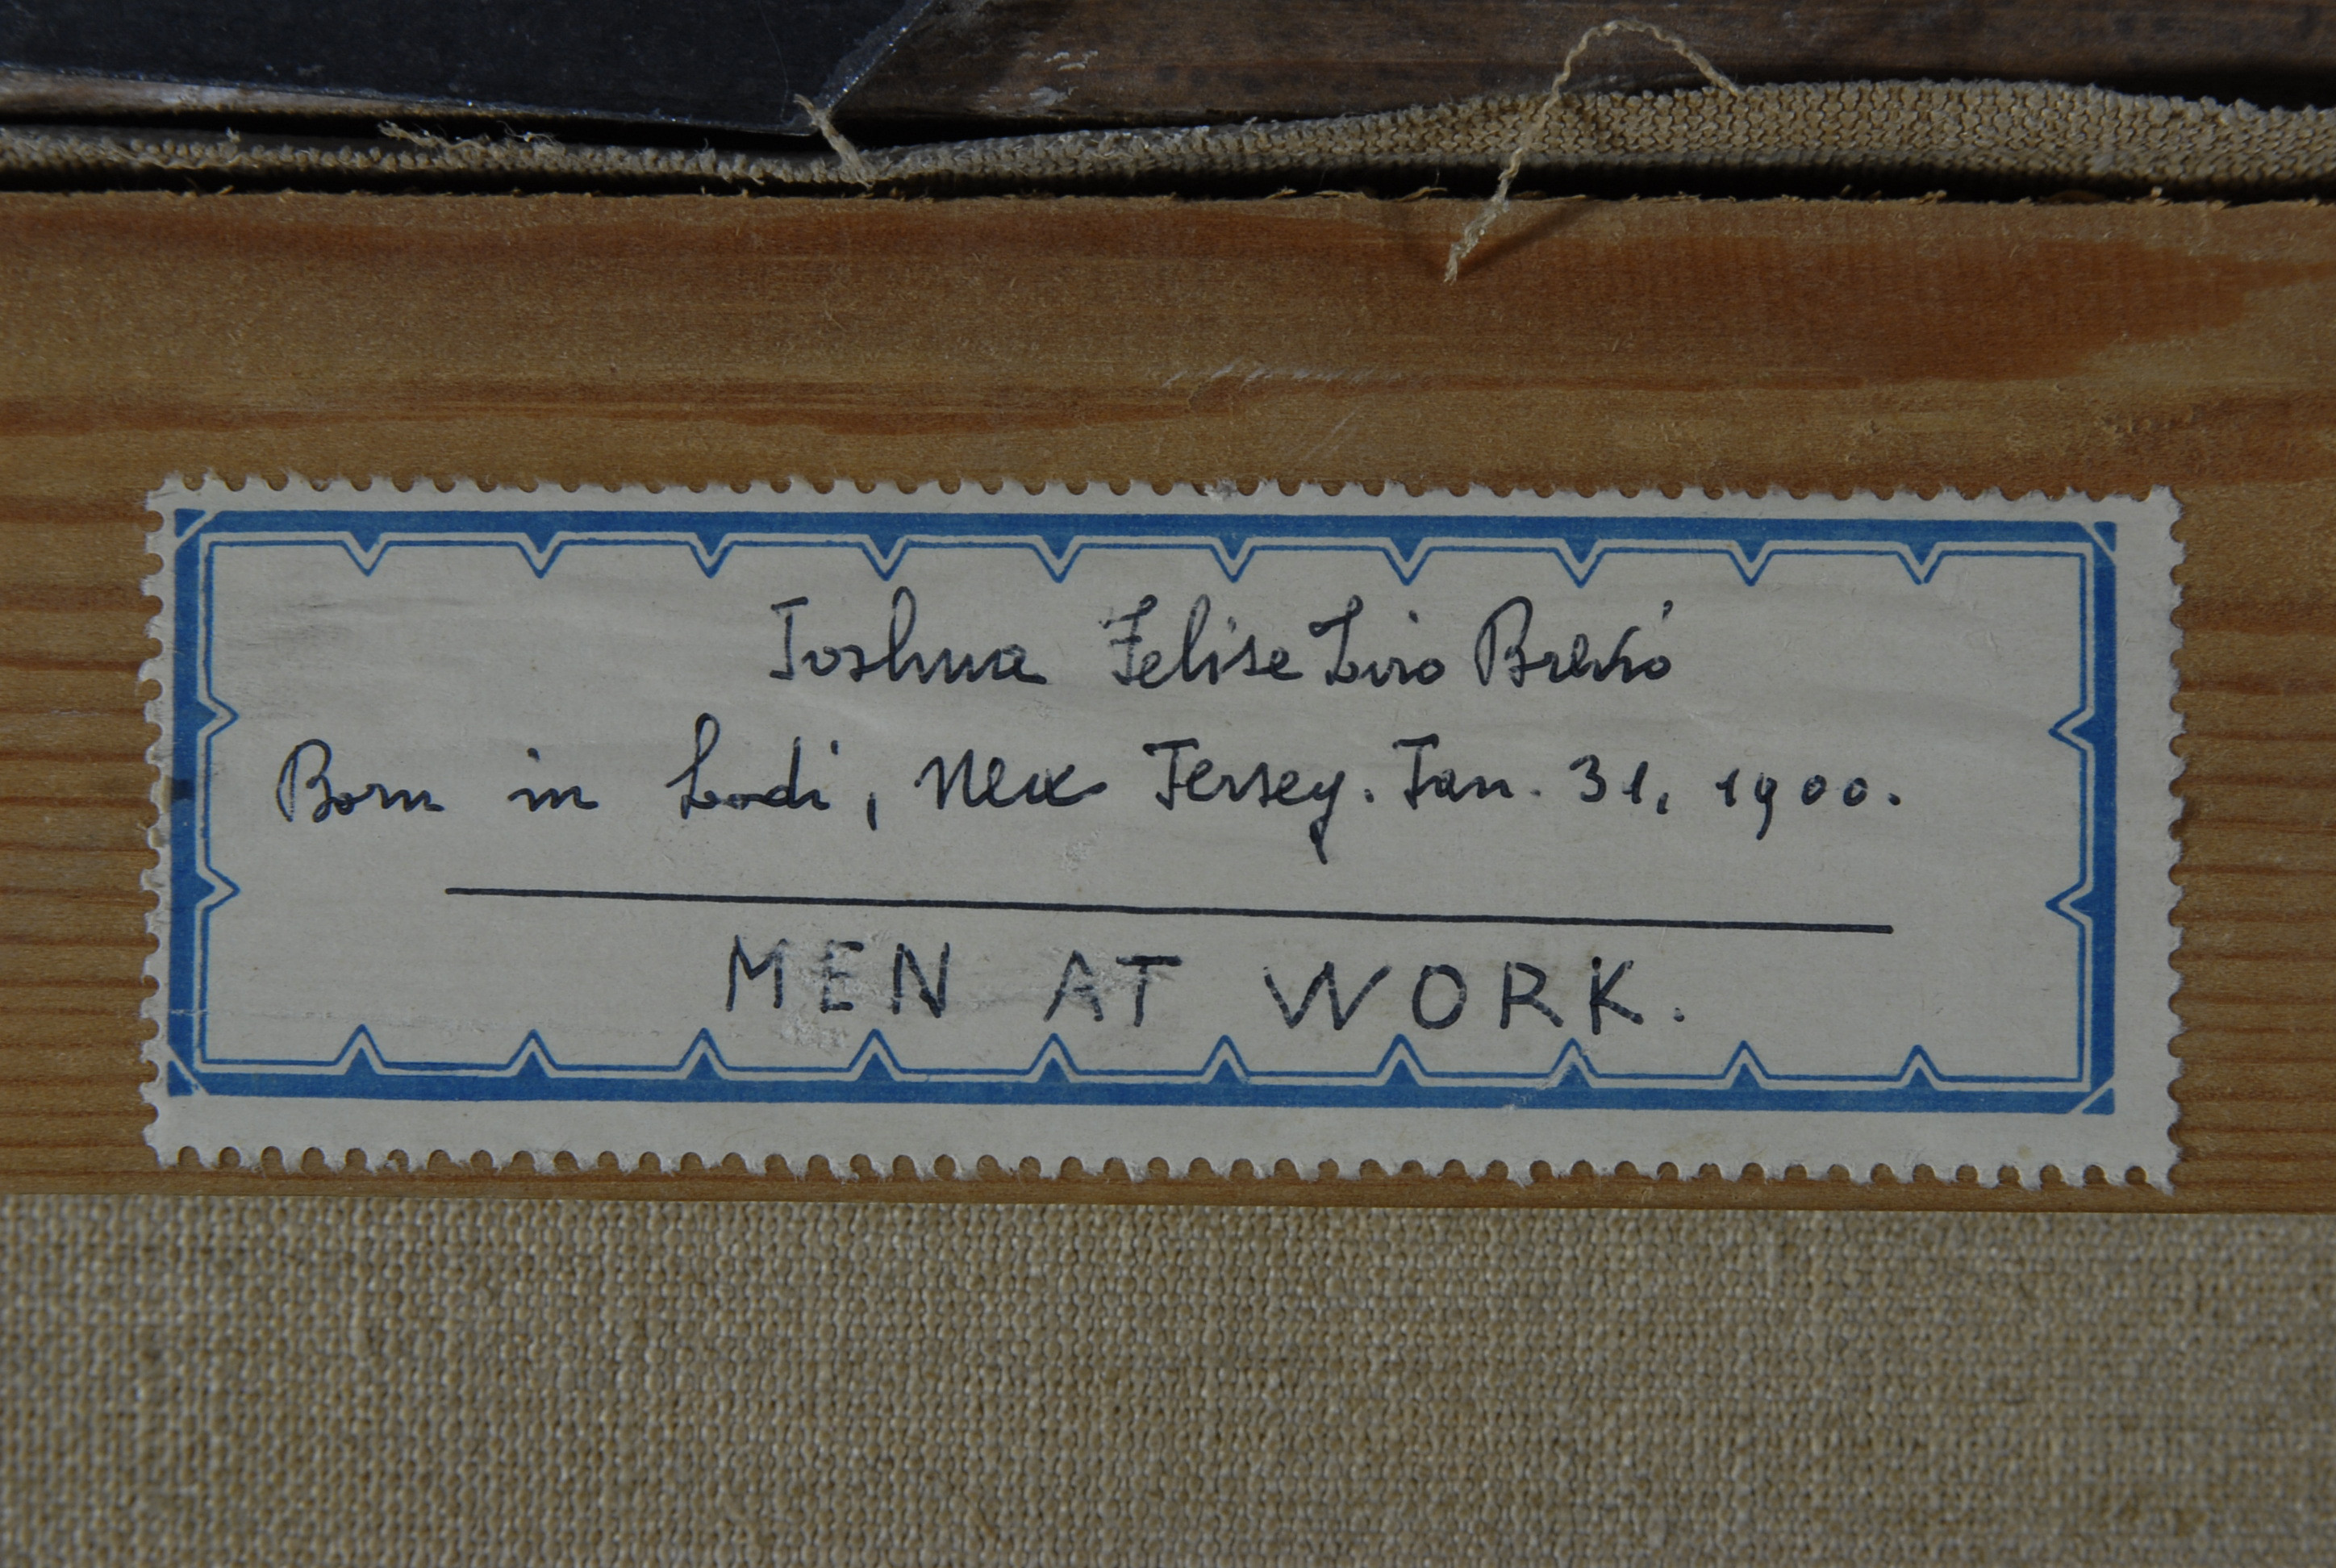 Joshua Felise Liro
Born in Lodi, New Jersey. Jan. 31, 1900.
MEN AT WORK.